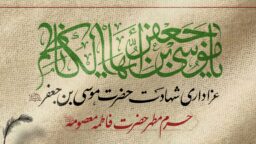 یا موسی بن جعفر ایها الکاظم
عزاداری شهادت حضرت موسی بن جعفر
حرم مطهر حضرت فاطمه معصومه